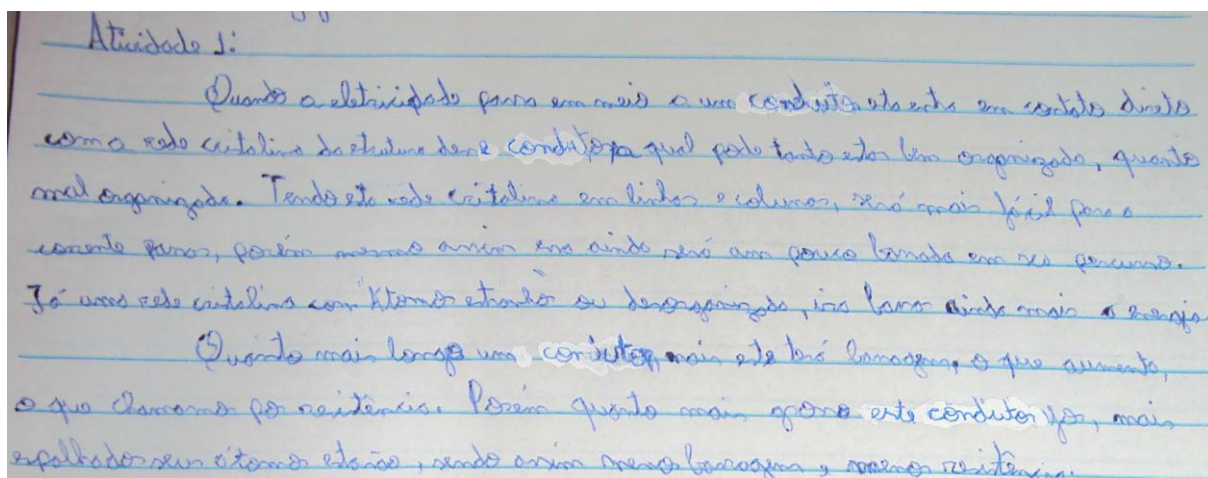 Atividade 1:
Quando a eletricidade passa em meio a um condutor ela entra em contato direto
com a rede cristalina da estrutura desse condutor, a qual pode tanto estar bem organizada, quanto
mal organizada. Tendo esta rede cristalina em linhas e colunas, será mais fácil para a
corrente passar, porém mesmo assim ela ainda será um pouco barrada em seu percurso.
Já uma rede cristalina com átomos estranhos ou desorganizada, irá barrar ainda mais a energia
Quanto mais longo um condutor, mais ele terá barragem, o que aumenta,
o que chamamos por resitência. Porém quanto mais grosso este condutor for, mais
espalhados seus átomos estarão, sendo assim menos barragem, e menor resitência.